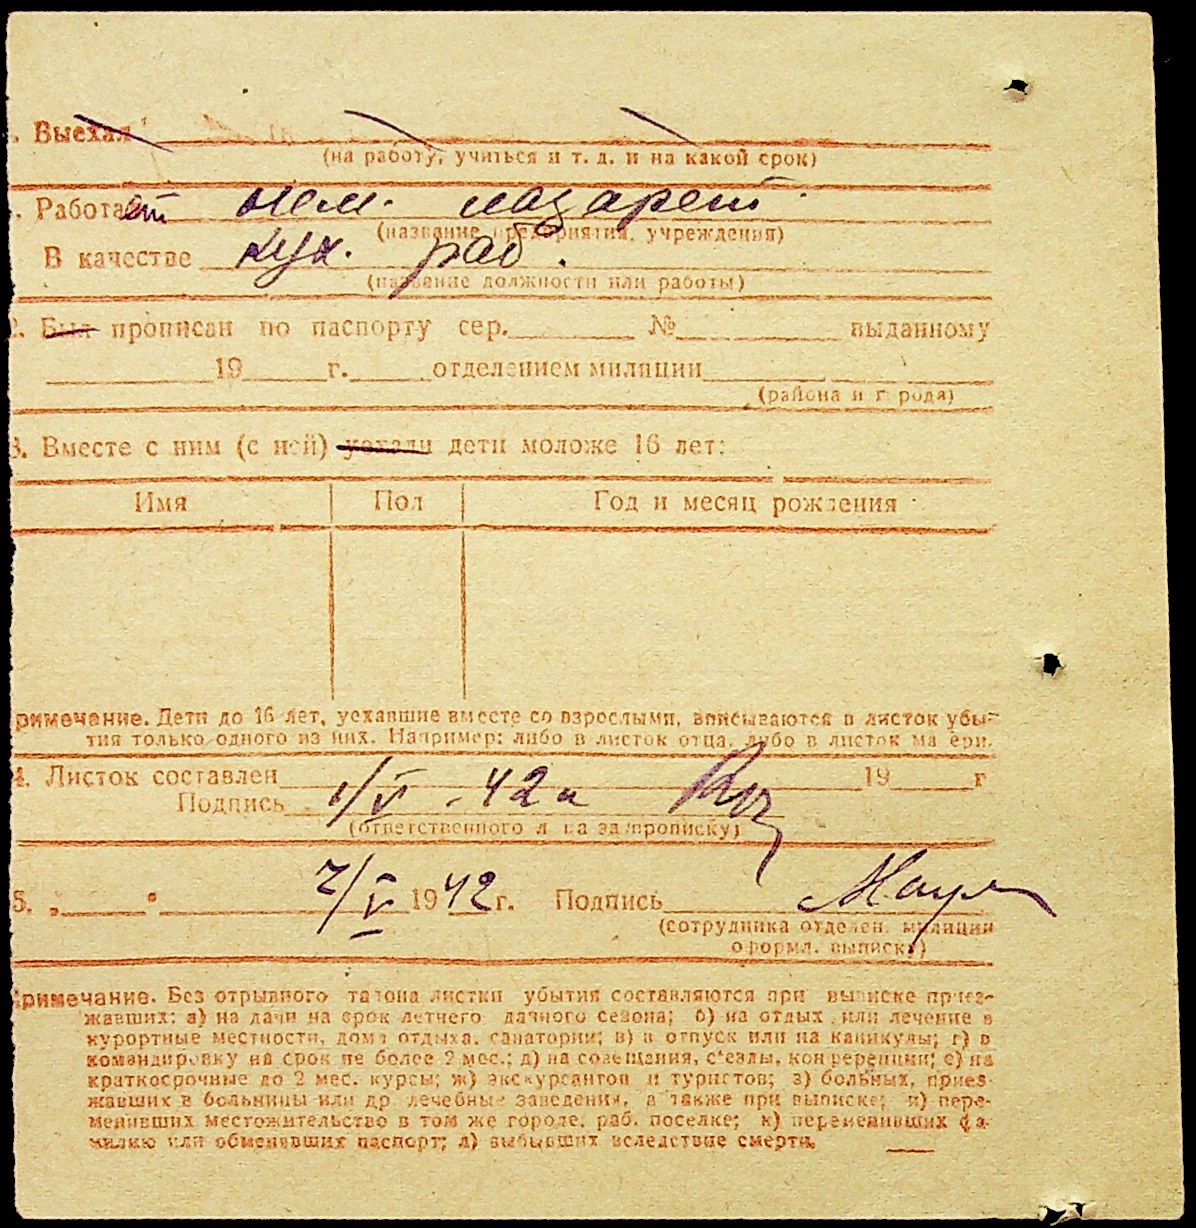 . Выехал
(на работу, учиться и т. д. и на какой срок)
. Работает нем. лазарет.
(название предприятия, учреждения)
В качестве кух. раб.
(название должности или работы)
2. Был прописан по паспорту сер. № выданному
19 г. отделением милиции
(района и города)
3. Вместе с ним (с ней) уехали дети моложе 16 лет:
Имя Пол Год и месяц рождения
римечание. Дети до 16 лет, уехавшие вместе со взрослыми, вписываются в листок убы-
тия только одного из них. Например: либо в листок отца, либо в листок матери.
4. Листок составлен 19 г
Подпись 1/V - 42
(ответственного лица за прописку)
5. „ “ 2/V 1942 г. Подпись
(сотрудника отделен. милиции
оформл. выписку)
римечание. Без отрывного талона листки убытия составляются при выписке приез-
жавших: а) на дачи на срок летнего дачного сезона; б) на отдых или лечение в
курортные местности, дома отдыха, санатории; в) в отпуск или на каникулы; г) в
командировку на срок не более 2 мес.; д) на совещания, с'езды, конференции; е) на
краткосрочные до 2 мес. курсы; ж) экскурсантов и туристов; з) больных, приез-
жавших в больницы или др. лечебные заведения, а также при выписке; и) пере-
менивших местожительство в том же городе, раб. поселке; к) переменивших фа-
милию или обменявших паспорт; л) выбывших вследствие смерти.